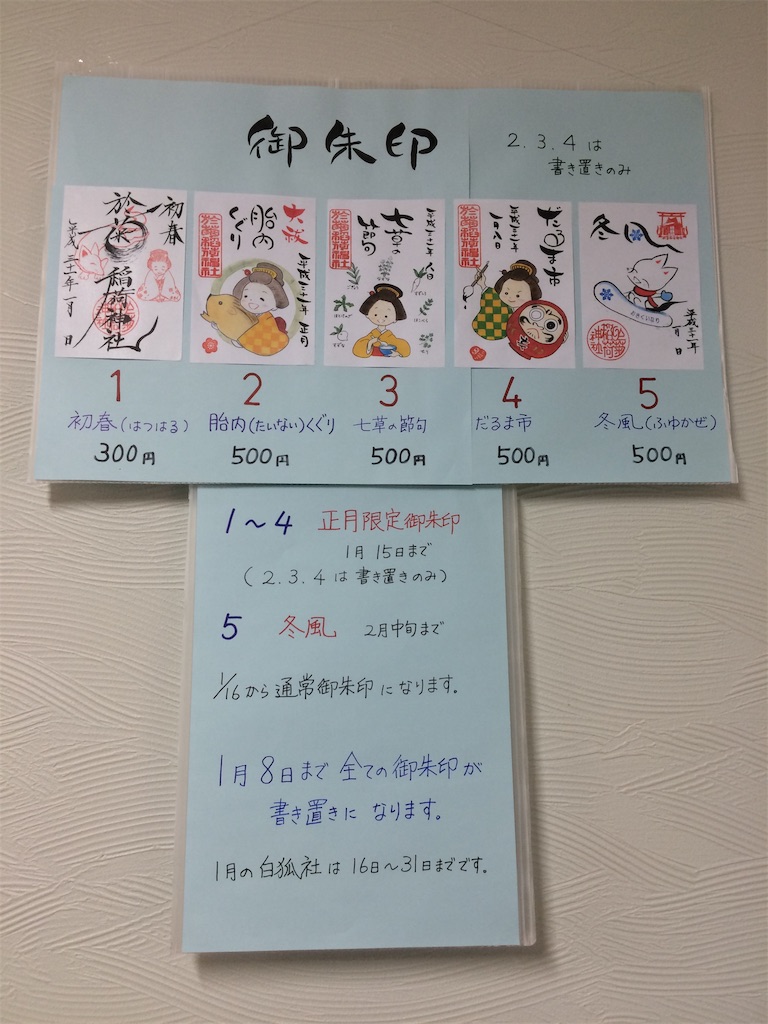 御朱印
2.3.4は
書き置きのみ
初春
於菊稲荷神社
平成三十一年一月 日
大祓
胎内くぐり
平成三十一年 正月
七草の節句
だるま市
平成三十一年
一月八日
冬風
平成三十一年
一月 日
1
2
3
4
5
初春(はつはる)
胎内(たいない)くぐり
七草の節句
だるま市
冬風(ふゆかぜ)
300円
500円
500円
500円
500円
1～4 正月限定御朱印
1月15日まで
(2.3.4は書き置きのみ)
5 冬風 2月中旬まで
1/16から通常御朱印になります。
1月8日まで全ての御朱印が
書き置きになります。
1月の白狐社は16日～31日までです。